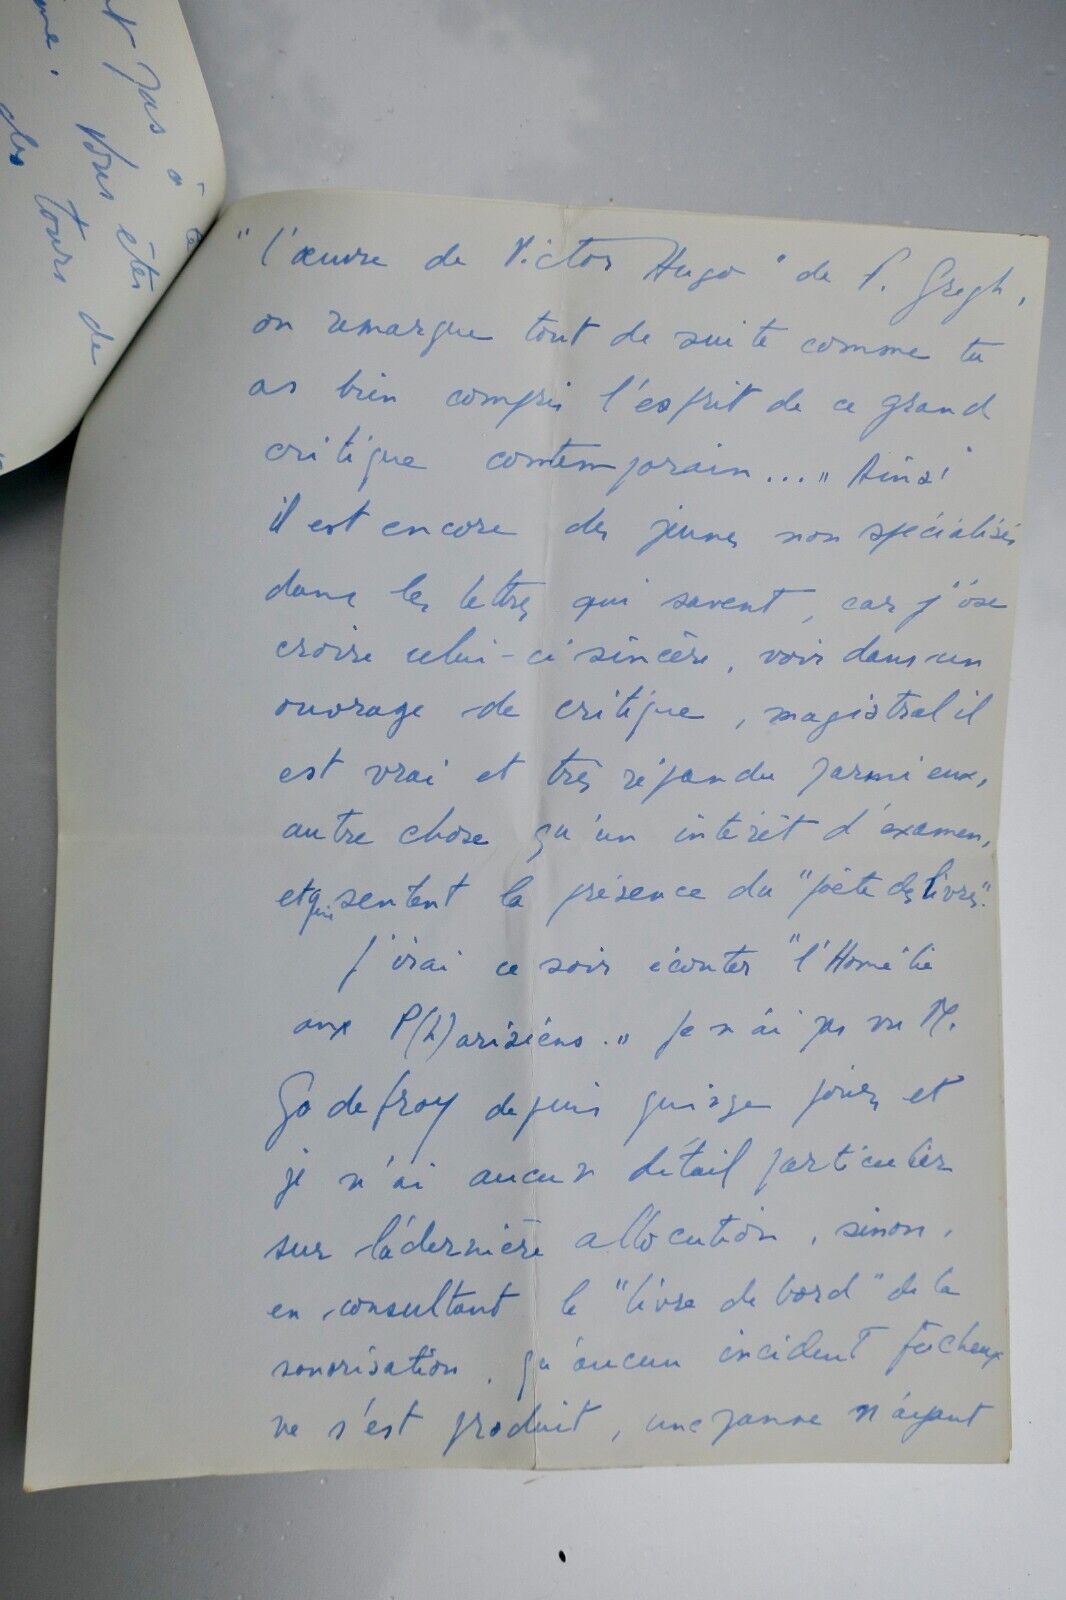 t pas à
me. Vous êtes
des tours de
"l'œuvre de Victor Hugo" de F. Gregh,
on remarque tout de suite comme tu
as bien compris l'esprit de ce grand
critique contemporain..." Ainsi
il est encore des jeunes non spécialisés
dans les lettres qui savent, car j'ose
croire celui-ci sincère, voir dans un
ouvrage de critique, magistral il
est vrai et très répandu parmi eux,
autre chose qu'un intérêt d'examen,
et qui sentent la présence du "poète des livres".
J'irai ce soir écouter "l'Homélie
aux P(h)arisiens." Je n'ai pas vu M.
Godefroy depuis quinze jours et
je n'ai aucun détail particulier
sur la dernière allocution, sinon,
en consultant le "livre de bord" de la
sonorisation, qu'aucun incident fâcheux
ne s'est produit, une panne n'ayant